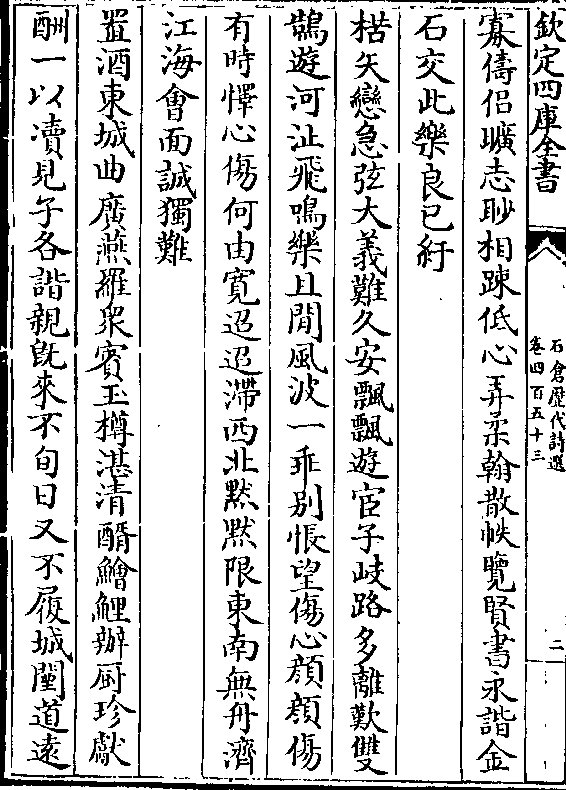 欽定四庫全書
石倉歷代詩選
卷四百五十三
二
寡儔侶曠志眇相踈低心弄柔翰散帙覽賢書永諧金
石交此樂良已紆
楛矢戀急弦大義難久安飄飄遊宦子岐路多離歎雙
鵠遊河沚飛鳴樂且閒風波一乖别悵望傷心顔顔傷
有時懌心傷何由寛迢迢滯西北黙黙限東南無舟濟
江海會面誠獨難
置酒東城曲廣燕羅衆賓玉樽湛清醑鱠鯉辦厨珍獻
酬一以凟見子各諧親既來不旬日又不履城闉道遠